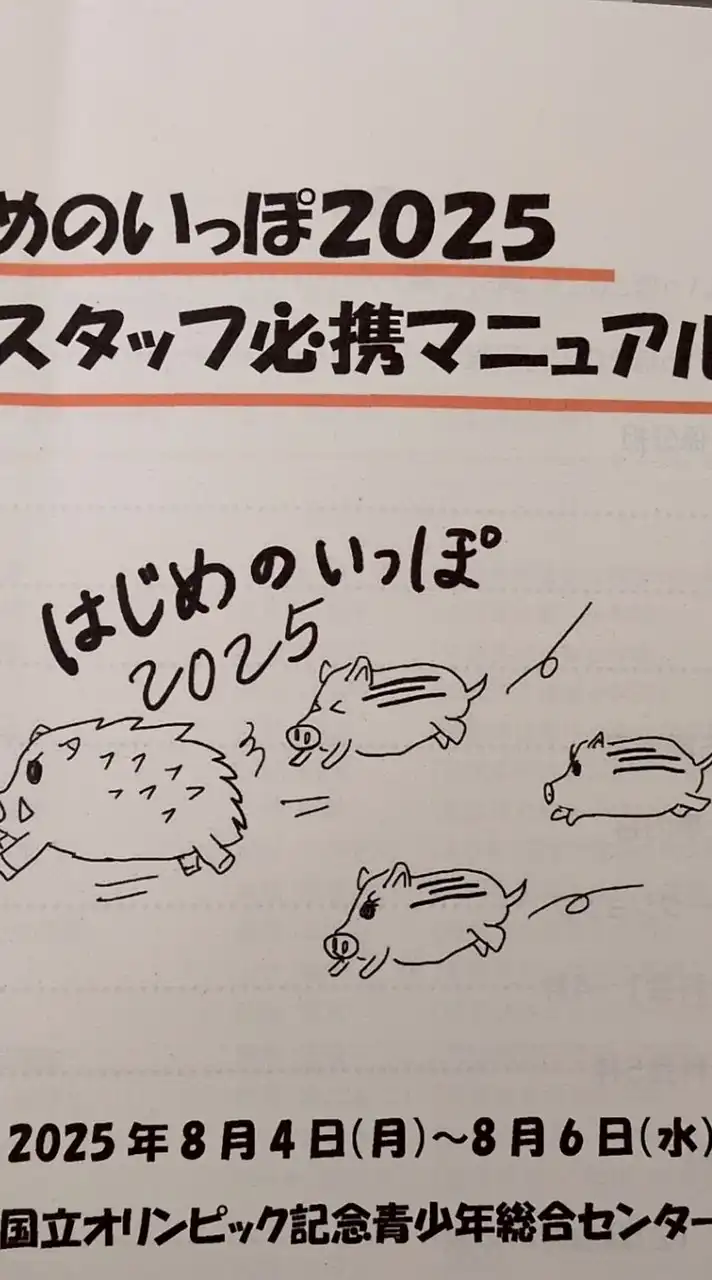 めのいっぽ2025
スタッフ必携マニュアル
はじめのいっぽ
2025
2025年8月4日(月)～8月6日(水)
国立オリンピック記念青少年総合センター